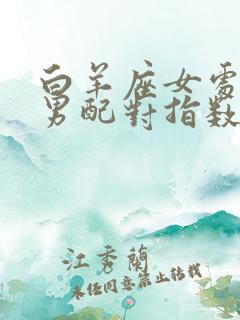 白羊座女處
男配對指数
江秀蘭
未经同意禁止转载